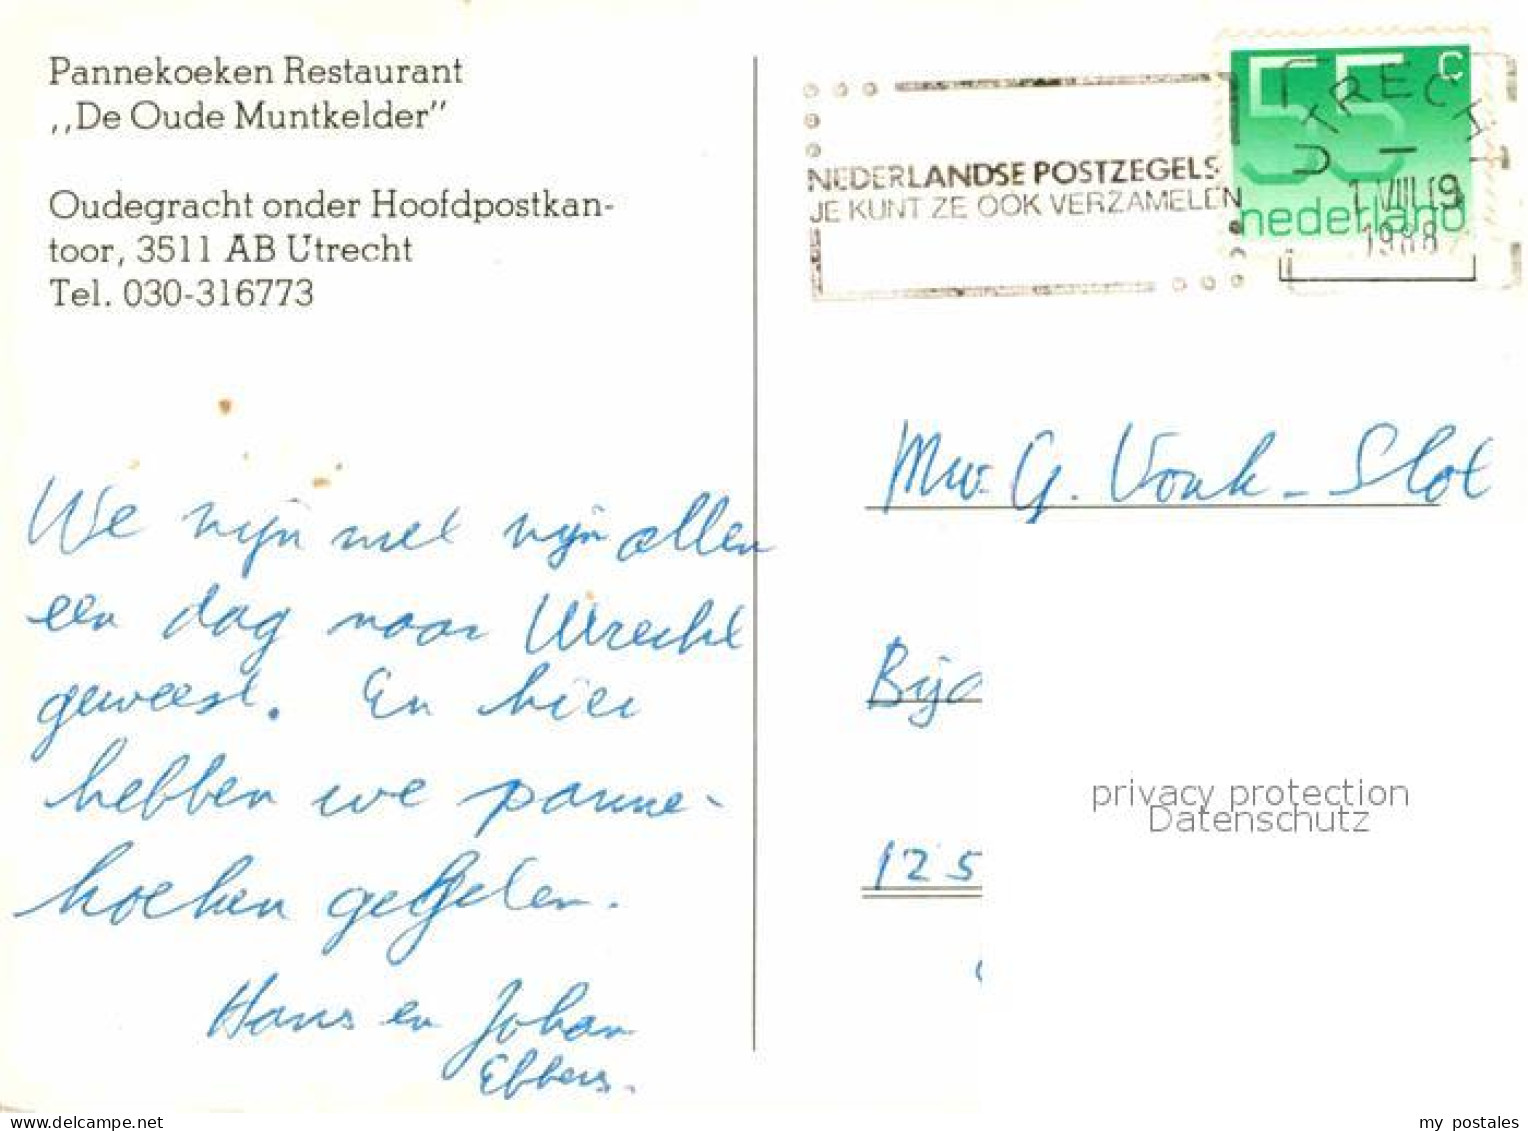 Pannekoeken Restaurant
,,De Oude Muntkelder”
Oudegracht onder Hoofdpostkan-
toor, 3511 AB Utrecht
Tel. 030-316773
We zijn met zijn allen
een dag naar Utrecht
geweest. En hier
hebben we panne-
koeken gegeten.
Hans en Johan
Ebbers.
NEDERLANDSE POSTZEGELS
JE KUNT ZE OOK VERZAMELEN
55 c
nederland
UTRECHT
1 VIII 19
1988
Mw. G. Vonk - Slot
125
privacy protection
Datenschutz
www.delcampe.net
my_postales